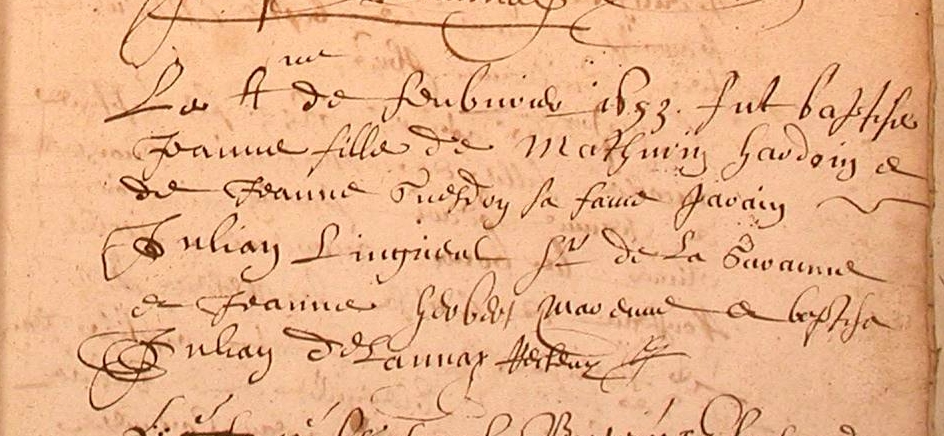 Le 4me de feubvrier 1653. fut baptisee
Jeanne fille de Mathurin hardoin et
de Jeanne Guesdon sa fame parain
Julian Linguenel Sr de La Garanne
et Jeanne herbert maraine et baptisa
Julian deLaunay